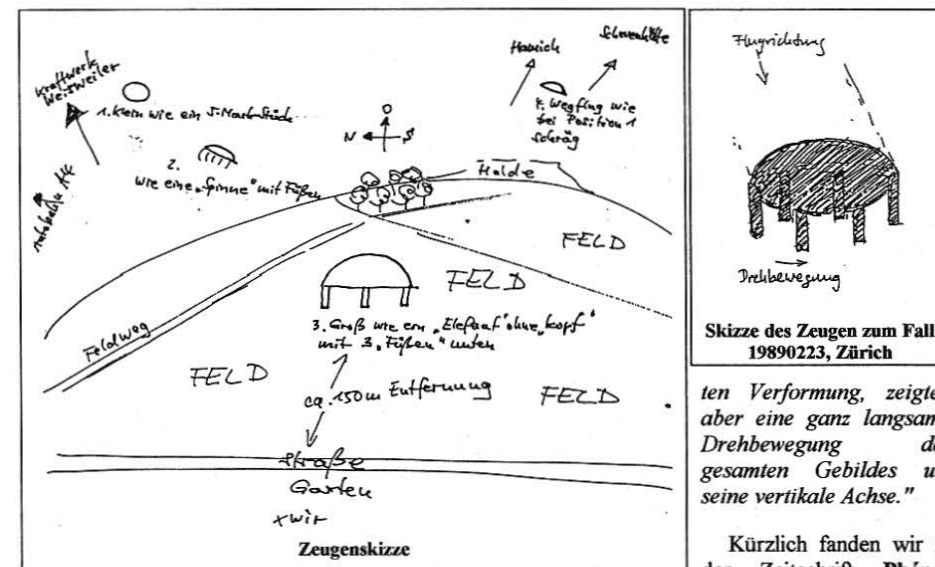 Kraftwerk
Weisweiler
1. Klein wie ein 5-Mark-Stück
2.
wie eine „Spinne" mit Füßen
Autobahn A4
O
N
S
Hamich
Schevenhütte
4. Wegflug wie
bei Position 1
schräg
Halde
FELD
FELD
3. Groß wie ein „Elefant" ohne „Kopf"
mit 3 „Füßen" unten
Feldweg
FELD
ca. 150m Entfernung
FELD
Straße
Garten
x wir
Zeugenskizze
Flugrichtung
Drehbewegung
Skizze des Zeugen zum Fall
19890223, Zürich
ten Verformung, zeigte
aber eine ganz langsam
Drehbewegung
gesamten Gebildes
seine vertikale Achse."
Kürzlich fanden wir
der Zeitschrift